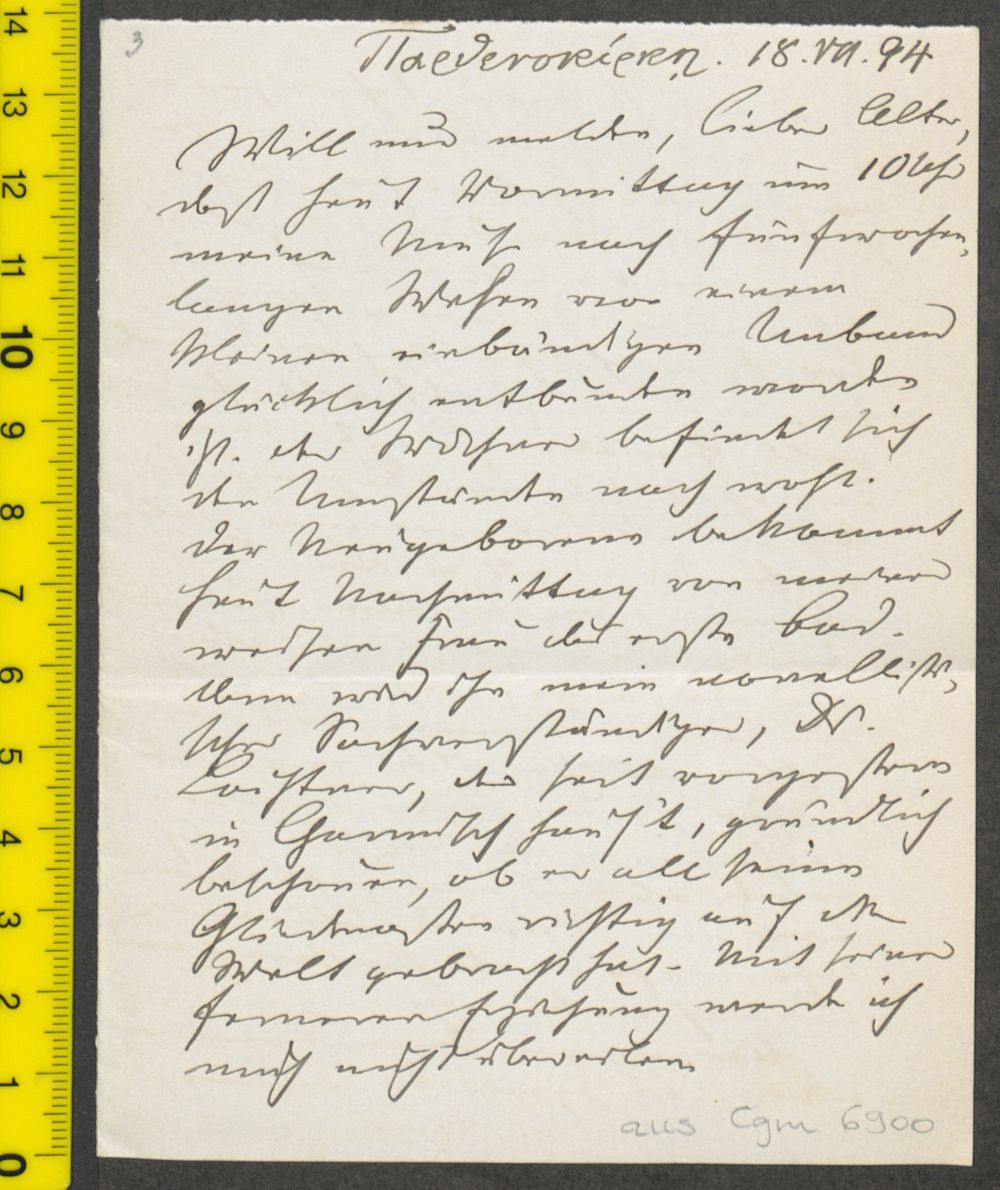 3
Παρθενοκίρκη. 18.VII.94
Will nur melden, lieber Alter,
daß heut Vormittag um 10 Uhr
meine Muse nach fünfwochen-
langen Wehen von einem
kleinen einbändigen Unband
glücklich entbunden worden
ist. die Wöchnerin befindet sich
den Umständen nach wohl.
Der Neugeborene bekommt
heut Nachmittag von meiner
weisen Frau das erste Bad.
dann wird ihn mein novellisti-
scher Sachverständiger, Dr.
Laistner, der seit vorgestern
in Garmisch haus't, gründlich
beschauen, ob er all seine
Gliedmaßen richtig auf die
Welt gebracht hat. Mit seiner
ferneren Erziehung werde ich
mich nicht übereilen
aus Cgm 6900
14
13
12
11
10
9
8
7
6
5
4
3
2
1
0